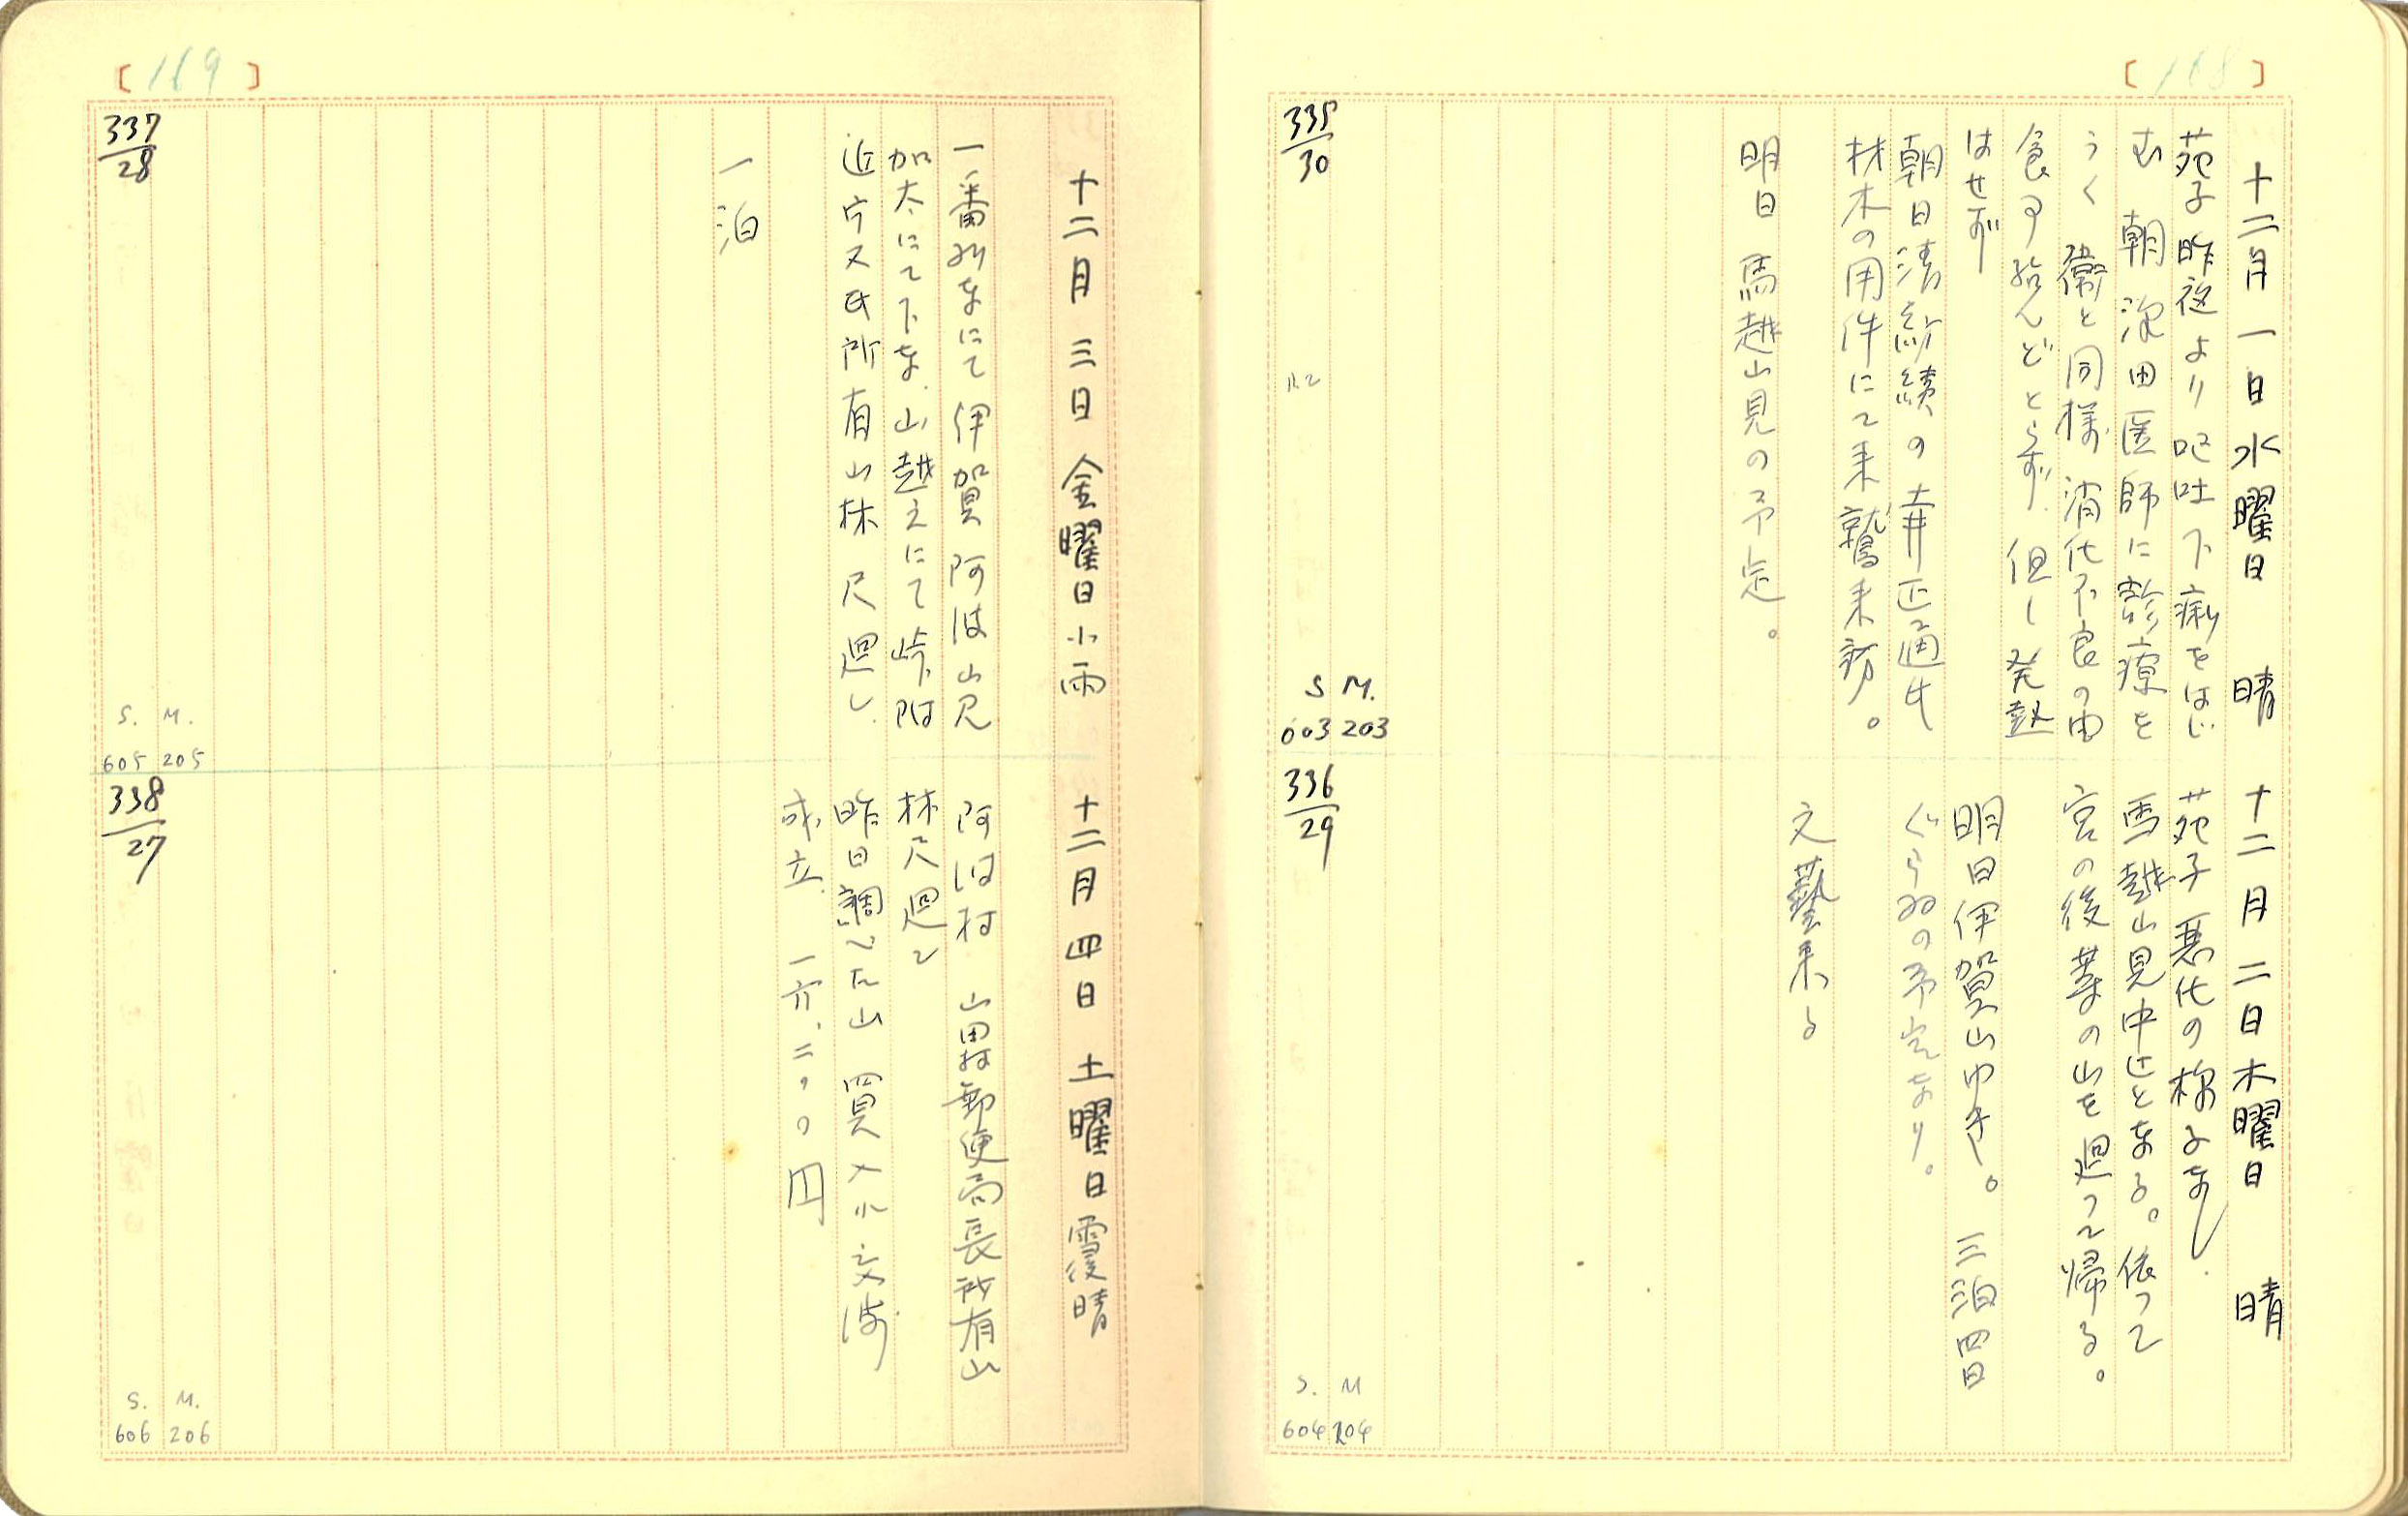 [168]
十二月一日水曜日 晴
苑子昨夜より呕吐下痢をはじ
む 朝 濱田医師に診療を
うく 衛と同様 消化不良の由
食事殆んどとらず.但し発熱
はせず
朝日清紡績の土井正通氏
材木の用件にて来鷲来訪。
明日馬越山見の予定。
335/30
S M.
603 203
十二月二日木曜日 晴
苑子悪化の様子なし.
馬越山見中止となる。依って
宮の後 墓の山を廻って帰る。
明日伊賀山ゆき。三泊四日
ぐらゐの予定なり。
文藝来る
336/29
S. M
604 204
[169]
十二月三日金曜日小雨
一番列車にて伊賀阿波山見
加太にて下車.山越えにて峠
氏所有山林尺廻し.
一泊
337/28
S. M.
605 205
十二月四日土曜日雪後晴
阿波村 山田村郵便局長所有山
林尺廻し
昨日調べた山 買入れ交渉
成立. 一六.二〇〇円
338/27
S. M.
606 206